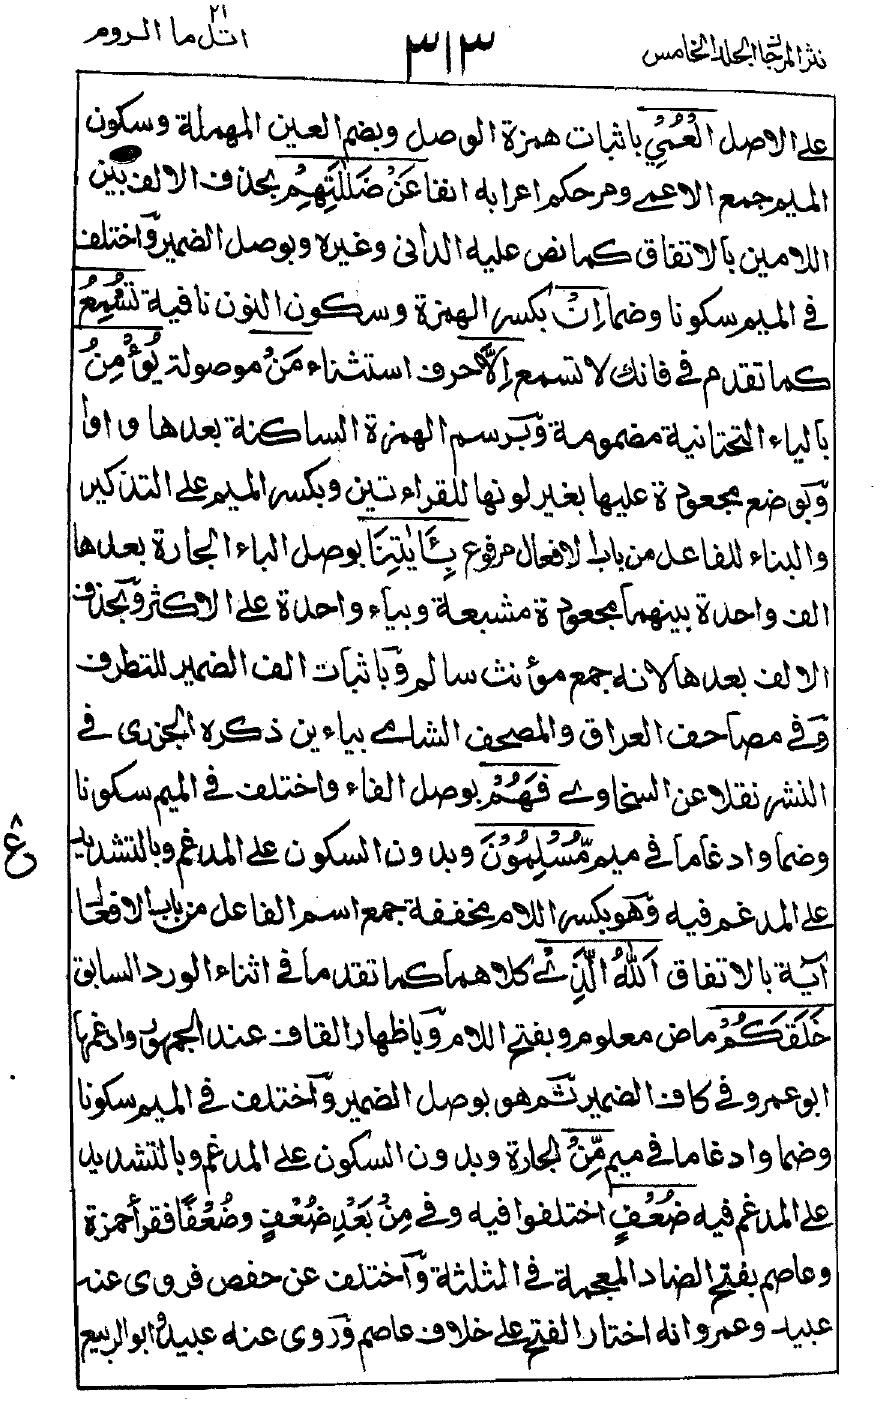 نثر المرجان المجلد الخامس
٣١٣
اتل ما ٢١ الروم
على الاصل الْعُمْيِ باثبات همزة الوصل وبضم العين المهملة وسكون
الميم جمع الاعمى ومر حكم اعرابه انفا عَنْ ضَلٰلَتِهِمْ بحذف الالف بين
اللامين بالاتفاق كما نص عليه الدانى وغيره وبوصل الضمير واختلف
فى الميم سكونا وضما اِنْ بكسر الهمزة وسكون النون نافية تُسْمِعُ
كما تقدم فى فانك لا تسمع اِلَّا حرف استثناء مَنْ موصولة يُؤْمِنُ
بالياء التحتانية مضمومة وبرسم الهمزة الساكنة بعدها واوا
وبوضع مجعودة عليها بغير لونها للقراءتين وبكسر الميم على التذكير
والبناء للفاعل من باب الافعال مرفوع بِـَٔايٰتِنَا بوصل الباء الجارة بعدها
الف واحدة بينهما مجعودة مشبعة وبياء واحدة على الاكثر وبحذف
الالف بعدها لانه جمع مؤنث سالم وباثبات الف الضمير للتطرف
وفى مصاحف العراق والمصحف الشامى بياءين ذكره الجزرى فى
النشر نقلا عن السخاوى فَهُمْ بوصل الفاء واختلف فى الميم سكونا
وضما وادغاما فى ميم مُّسْلِمُوْنَ وبدون السكون على المدغم وبالتشديد
على المدغم فيه وهو بكسر اللام مخففة جمع اسم الفاعل من باب الافعال
ع
آية بالاتفاق اَللّٰهُ الَّذِىْ كلاهما كما تقدما فى اثناء الورد السابق
خَلَقَكُمْ ماض معلوم وبفتح اللام وباظهار القاف عند الجمهور وادغمها
ابو عمرو فى كاف الضمير ثم هو بوصل الضمير واختلف فى الميم سكونا
وضما وادغاما فى ميم مِّنْ الجارة وبدون السكون على المدغم وبالتشديد
على المدغم فيه ضُعْفٍ اختلفوا فيه وفى مِنْ بَعْدِ ضُعْفٍ وضُعْفًا فقرأ حمزة
وعاصم بفتح الضاد المعجمة فى الثلثة واختلف عن حفص فروى عنه
عبيد وعمرو انه اختار الفتح على خلاف عاصم وروى عنه عبيد وابو الربيع